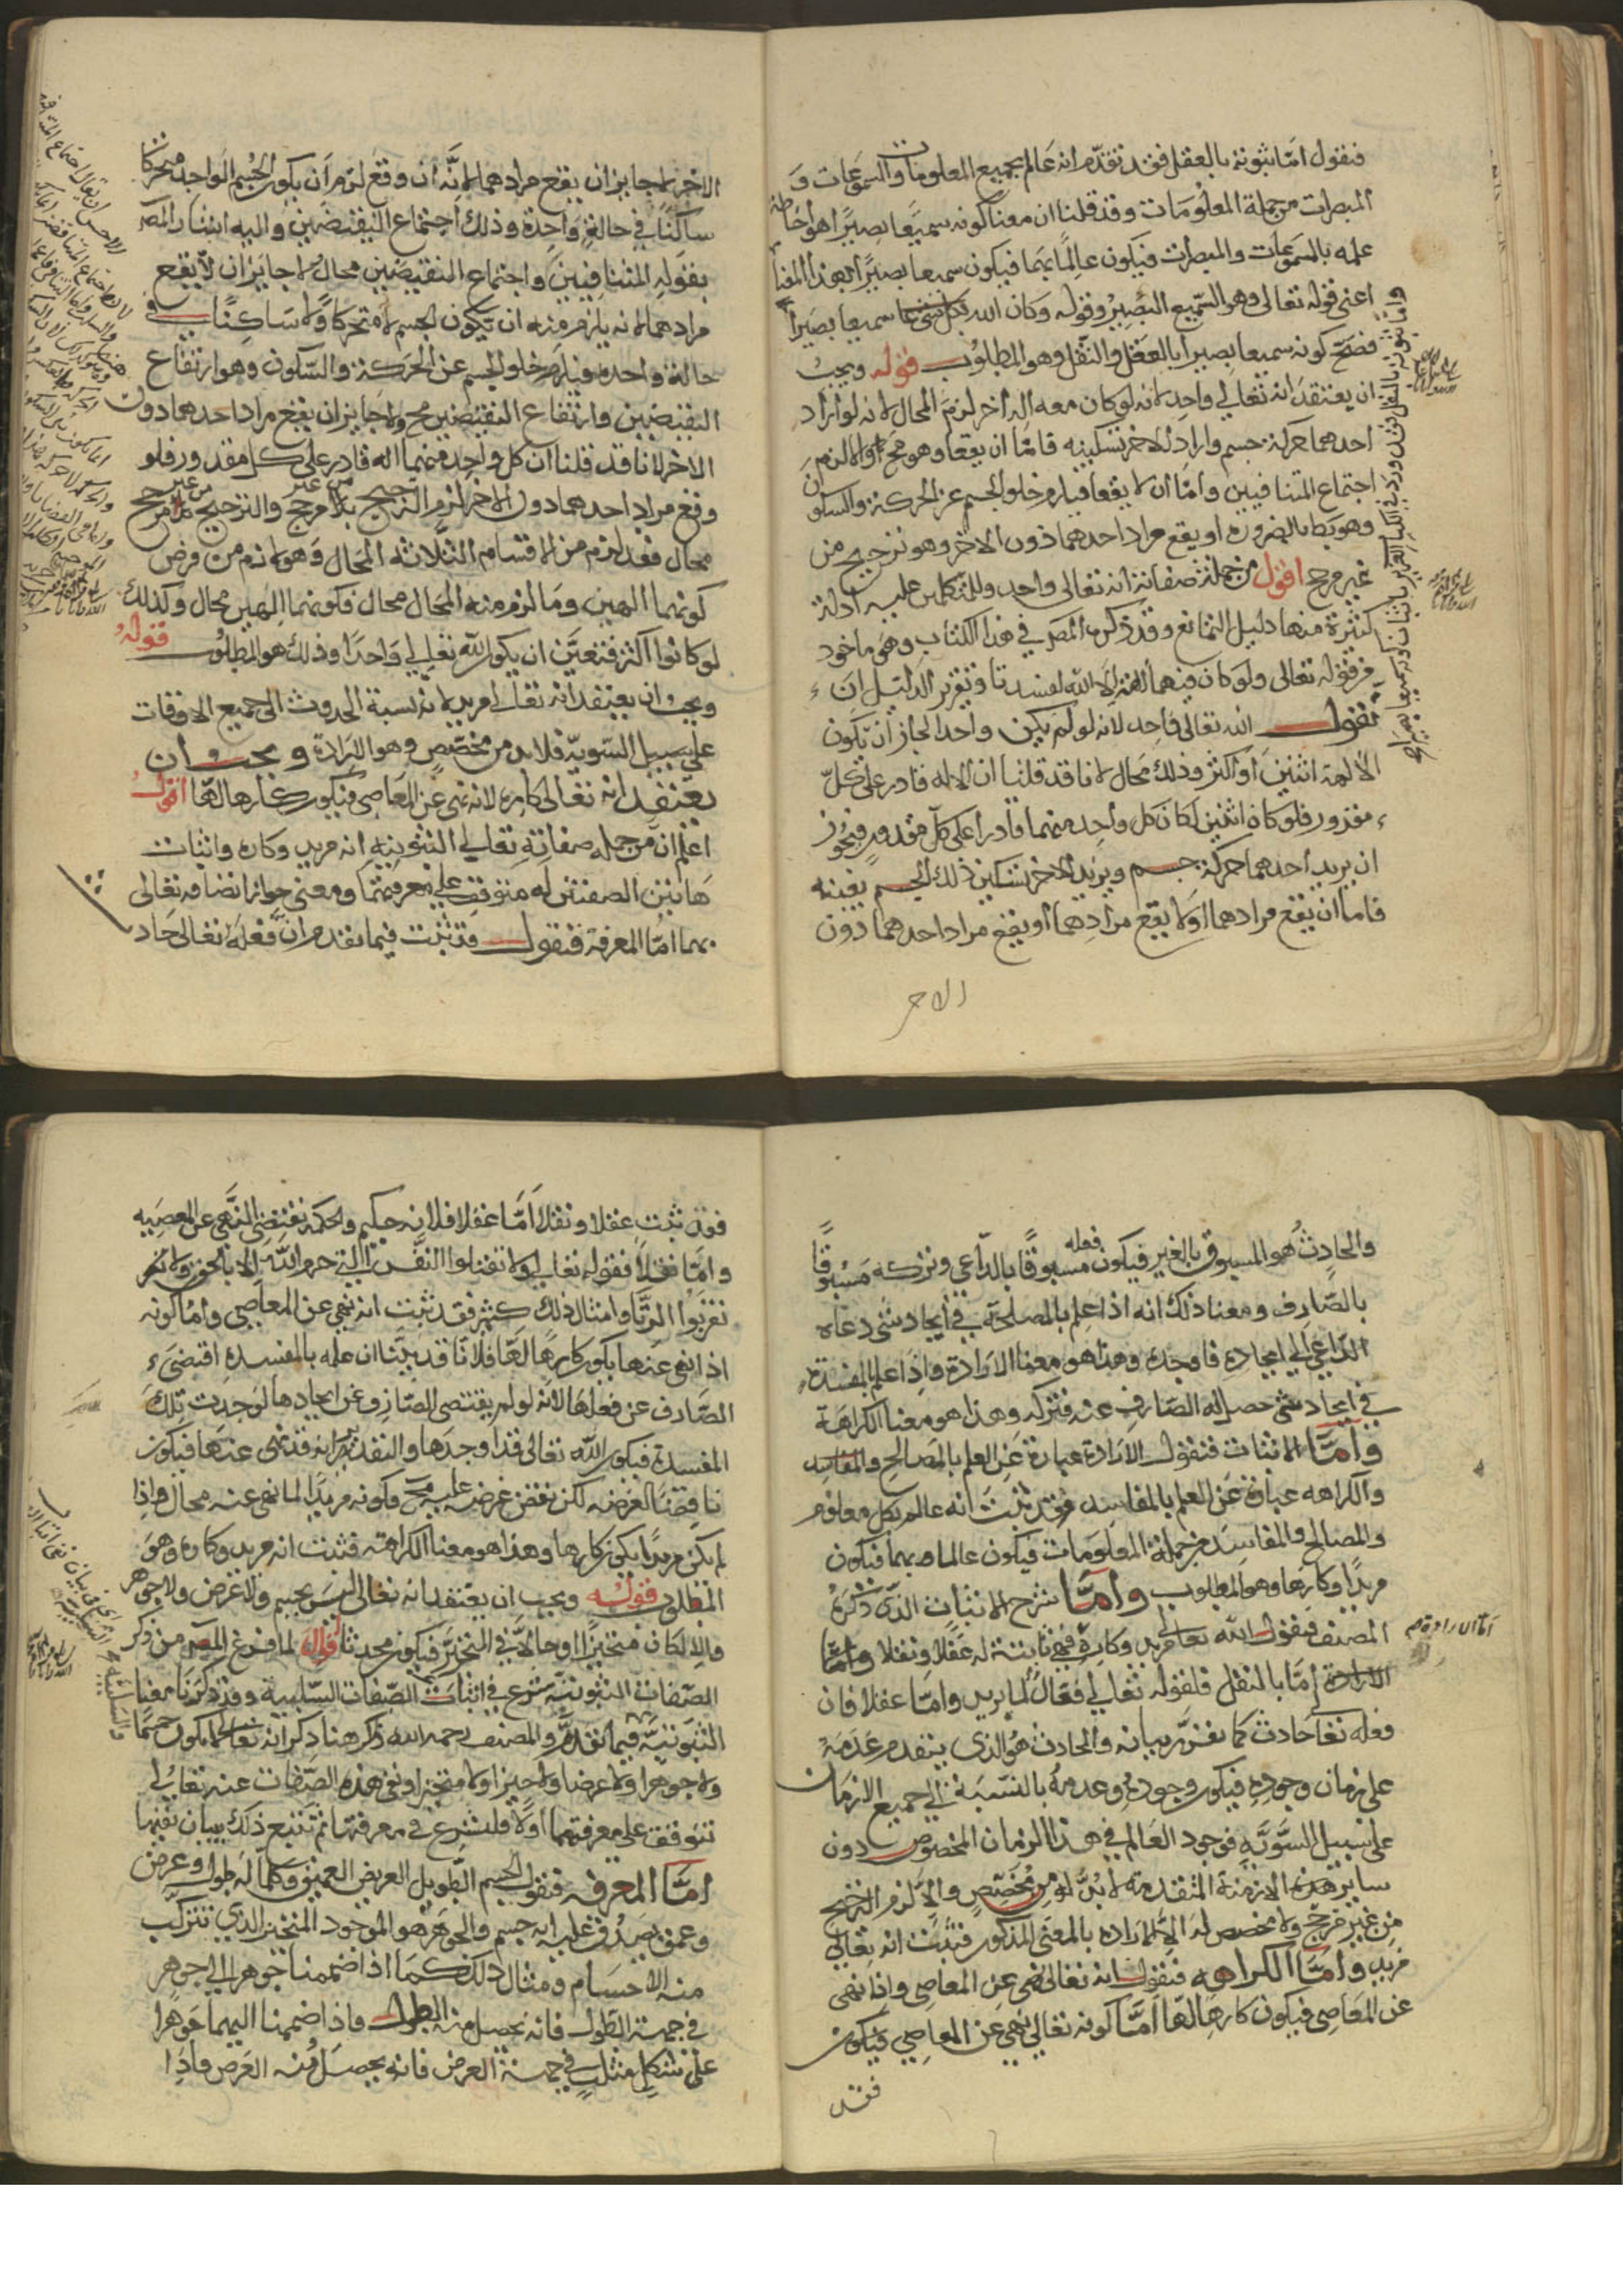 فنقول امّا ثبوته بالعقل فقد تقدّم انه عالم بجميع المعلومات والسموعات و
المبصرات من جملة المعلومات وقد قلنا ان معنا كونه سميعًا بصيرًا هو احاطة
علمه بالمسموعات والمبصرات فيكون عالمًا بهما فيكون سميعا بصيرًا بهذا المعنا
اعنى قوله تعالى وهو السّميع البصير وقوله وكان الله سميعا بصيرا
فصحّ كونه سميعا بصيرا بالعقل والنّقل وهو المطلوب قوله ويجب
ان يعتقد انه تعالى واحد لانه لو كان معه اله اخر لزم المحال لانه لو اراد
احدهما حركة جسم واراد الاخر تسكينه فامّا ان يقعا وهو مح والا لزم
اجتماع المتنافيين وامّا ان لا يقعا فيلزم خلو الجسم عن الحركة والسكون
وهو بط بالضرورة او يقع مراد احدهما دون الاخر وهو ترجيح من
غير مرجح اقول من جملة صفاته انه تعالى واحد وللمتكلمين عليه ادلة
كثيرة منها دليل التمانع وقد ذكره المص في هذا الكتاب وهى ماخوذ
من قوله تعالى ولو كان فيهما آلهة الا الله لفسدتا وتقرير الدليل ان
نقول الله تعالى واحد لانه لو لم يكن واحدا لجاز ان تكون
الالهة اثنين أو أكثر وذلك محال لانا قد قلنا ان الاله قادر على كلّ
مقدور فلو كانا اثنين لكان كل واحد منهما قادرا على كل مقدور فيجوز
ان يريد احدهما حركة جسم ويريد الاخر تسكين ذلك الجسم بعينه
فاما ان يقع مرادهما او لا يقع مرادهما او يقع مراد احدهما دون
الاخر
الاخر لا جايز ان يقع مرادهما لانّه ان وقع لزم ان يكون الجسم الواحد متحركا
ساكنا في حالة واحدة وذلك اجتماع النقيضين واليه اشار المص
بقوله المتنافيين واجتماع النقيضين محال ولا جايز ان لا يقع
مرادهما لانه يلزم منه ان يكون الجسم لا متحركا ولا ساكنا في
حالة واحدة فيلزم خلو الجسم عن الحركة والسكون وهو ارتفاع
النقيضين وارتفاع النقيضين مح ولا جايز ان يقع مراد احدهما دون
الاخر لانا قد قلنا ان كل واحد منهما اله قادر على كل مقدور فلو
وقع مراد احدهما دون الاخر لزم الترجيح بلا مرجح والترجيح من غير مرجح
محال فقد لزم من الاقسام الثلاثة المحال وهو لازم من فرض
كونهما الهين وما لزم منه المحال محال فكونهما الهين محال وكذلك
لو كانوا اكثر فتعيّن ان يكون الله تعالى واحدا وذلك هو المطلوب قوله
ويجب ان يعتقد انه تعالى مريد لانه نسبة الحدوث الى جميع الاوقات
على سبيل السّويّة فلابد من مخصّص وهو الارادة ويجب ان
يعتقد انه تعالى كاره لانه نهى عن المعاصى فيكون كارها لها اقول
اعلم ان من جملة صفاته تعالى الثبوتية انه مريد وكاره واثبات
هاتين الصفتين له متوقف على معرفتهما ومعنى جواز اتصافه تعالى
بهما امّا المعرفة فنقول قد ثبت فيما تقدم ان فعله تعالى حادث
والحادث هو المسبوق بالغير فيكون فعله مسبوقا بالدّاعى وتركه مسبوقا
بالصّارف ومعنا ذلك انه اذا علم بالمصلحة في ايجاد شى دعاه
الدّاعى الى ايجاده فاوجده وهذا هو معنا الارادة واذا علم بالمفسدة
في ايجاد شى حصل له الصّارف عنه فتركه وهذا هو معنا الكراهة
وامّا الاثبات فنقول الارادة عبارة عن العلم بالمصالح
والكراهه عبارة عن العلم بالمفاسد وقد ثبت انه عالم بكل معلوم
والمصالح والمفاسد من جملة المعلومات فيكون عالما بهما فيكون
مريدًا وكارها وهو المطلوب وامّا شرح الاثبات الذّى ذكره
المصنف فنقول الله تعالى مريد وكاره فهى ثابتة له عقلا ونقلا
امّا بالنقل فلقوله تعالى فعّال لما يريد وامّا عقلا فان
فعله تعا حادث كما تقرّر بيانه والحادث هو الذى يتقدم عدمه
على زمان وجوده فيكون وجوده وعدمه بالنّسبة الى جميع الازمان
على سبيل السّويّه فوجود العالم في هذا الزمان المخصوص دون
ساير هذه الازمنة المتقدمة لابدّ له من مخصّص والا لزم الترجيح
من غير مرجح ولا مخصص له الا الارادة بالمعنى المذكور فثبت انه تعالى
مريد وامّا الكراهه فنقول انه تعالى نهى عن المعاصى واذا نهى
عن المعاصى فيكون كارها لها امّا كونه تعالى نهى عن المعاصى فيكون
فقد
فقد ثبت عقلا ونقلا امّا عقلا فلانه حكيم والحكمة تقتضى النّهى عن المعصيه
وامّا نقلا فقوله تعالى ولا تقتلوا النفس التى حرم الله الا بالحق ولا
تقربوا الزّنا وامثال ذلك كثير فقد ثبت انه نهى عن المعاصى وامّا كونه
اذا نهى عنها يكون كارها لها فلانا قد بيّنا ان علمه بالمفسدة اقتضى
الصّارف عن فعلها لانه لو لم يقتضى الصّارف عن ايجادها لوجدت تلك
المفسدة فيكون الله تعالى قد اوجدها والتقدير انه قد نهى عنها فيكون
ناقضا لغرضه لكن نقض غرضه عليه مح فكونه مريدا لما نهى عنه محال واذا
لم يكن مريدًا يكون كارها وهذا هو معنا الكراهة فثبت انه مريد وكاره وهو
المطلوب قوله ويجب ان يعتقد انه تعالى ليس بجسم ولا عرض ولا جوهر
والا لكان متحيّزا او حالا في المتحيّز فيكون محدثا اقول لما فرغ المص من ذكر
الصّفات الثبوتيّة شرع في اثبات الصّفات السّلبية وقد ذكرنا معنا
الثبوتيّة فيما تقدم والمصنف رحمه الله ذكر هنا ذكر انه تعالى لا يكون جسما
ولا جوهرا ولا عرضا ولا حيزا ولا متحيزا ونفى هذه الصّفات عنه تعالى
تتوقف على معرفتهما اولا فلنشرع في معرفتها ثم نتبع ذلك ببيان نفيها
امّا المعرفه فنقول الجسم الطّويل العريض العميق وكلما له طول وعرض
وعمق يصدق عليه انه جسم والجوهر هو الموجود المتحيز الذى تتركّب
منه الاجسام ومثال ذلك كما اذا ضممنا جوهرا الى جوهر
في جهة الطّول فانه يحصل منه الطول فاذا ضممنا اليهما جوهرا
على شكل مثلث في جهة العرض فانه يحصل منه العرض فاذا